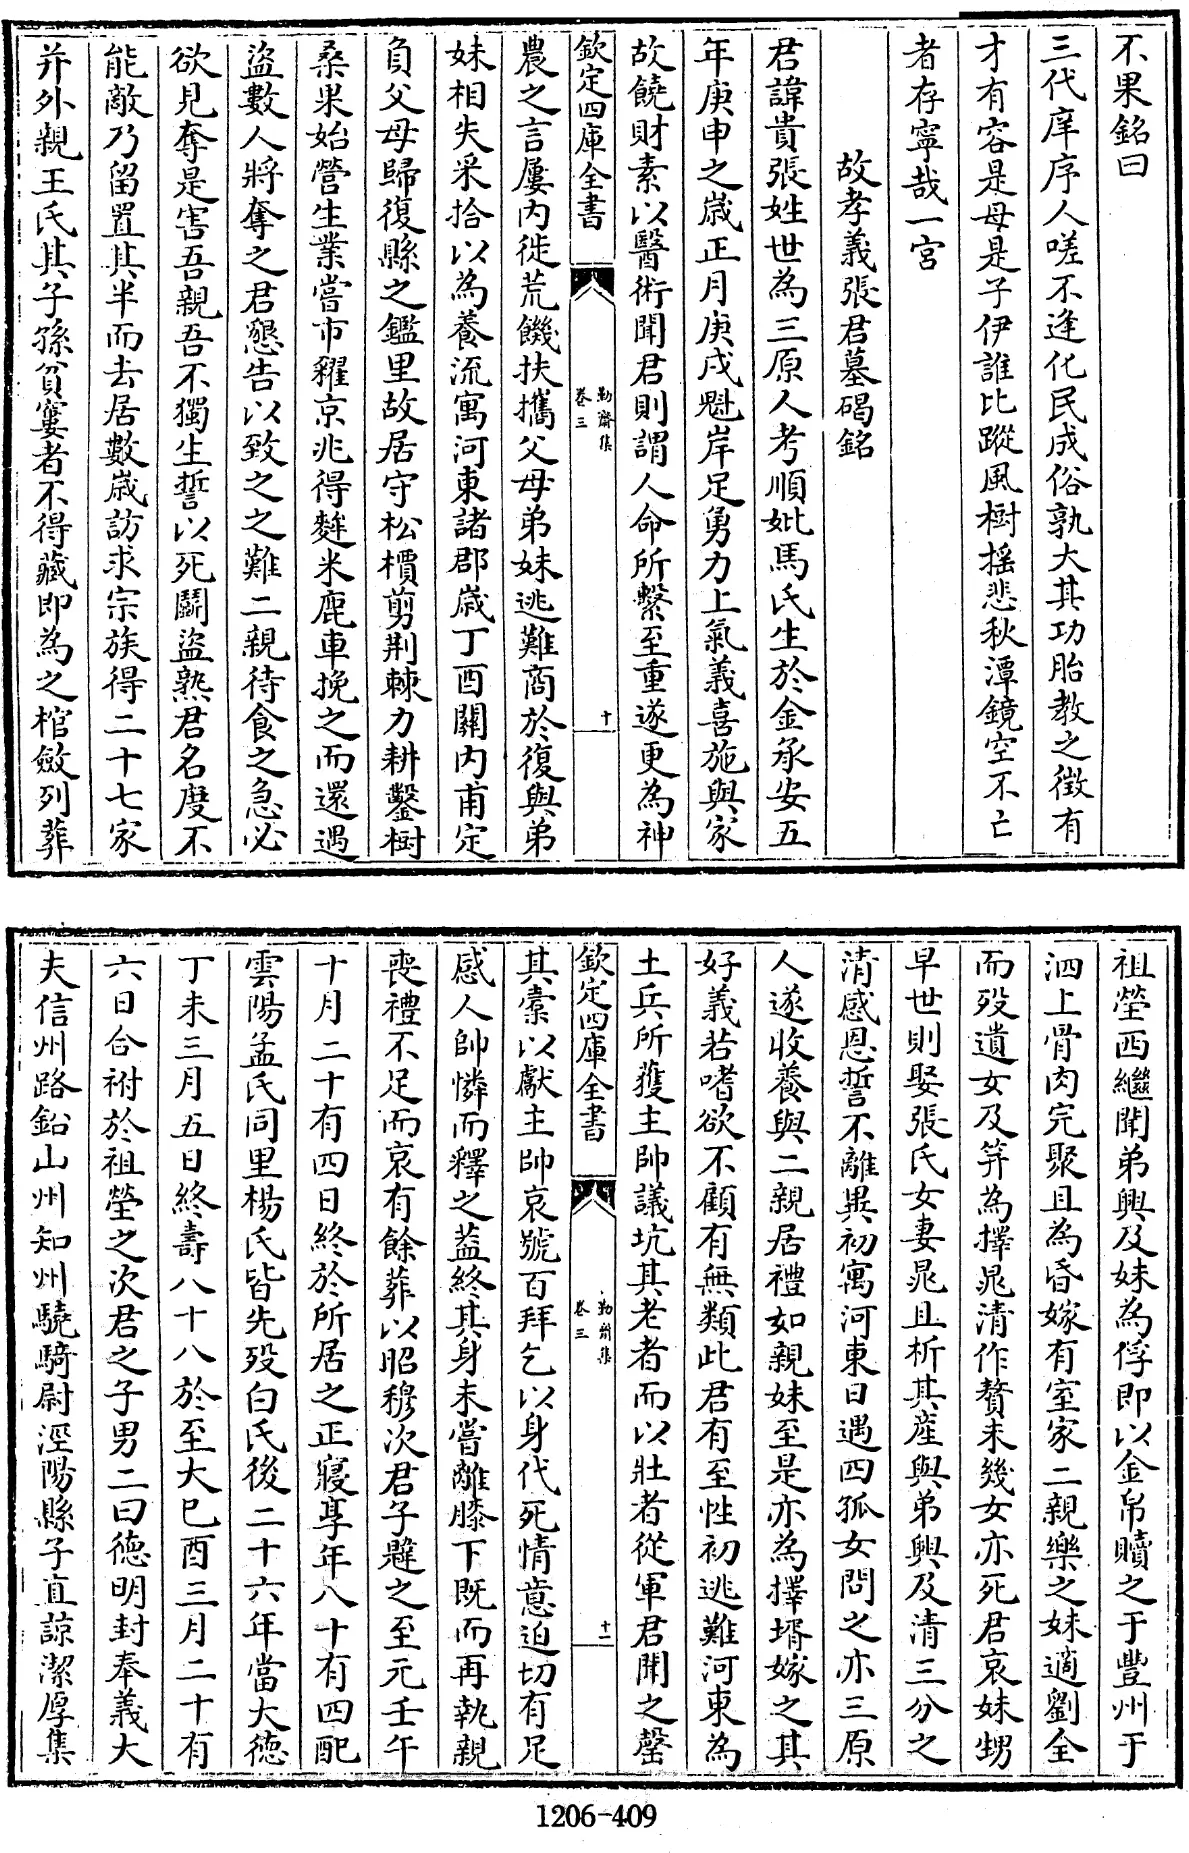 不果銘曰
三代庠序人嗟不逢化民成俗孰大其功胎教之徴有
才有容是母是子伊誰比蹤風樹揺悲秋潭鏡空不亡
者存寧哉一宮
故孝義張君墓碣銘
君諱貴張姓世為三原人考順妣馬氏生於金承安五
年庚申之嵗正月庚戌魁岸足勇力上氣義喜施與家
故饒財素以醫術聞君則謂人命所繫至重遂更為神
欽定四庫全書
勤齋集
卷三
十
農之言屢内徙荒饑扶攜父母弟妹逃難商於復與弟
妹相失采拾以為養流寓河東諸郡嵗丁酉關内甫定
負父母歸復縣之鑑里故居守松檟剪荆棘力耕鑿樹
桑果始營生業嘗市糴京兆得麰米鹿車挽之而還遇
盜數人將奪之君懇告以致之之難二親待食之急必
欲見奪是害吾親吾不獨生誓以死鬭盜熟君名度不
能敵乃留置其半而去居數嵗訪求宗族得二十七家
并外親王氏其子孫貧窶者不得藏即為之棺斂列葬
祖塋西繼聞弟興及妹為俘即以金帛贖之于豐州于
泗上骨肉完聚且為昏嫁有室家二親樂之妹適劉全
而歿遺女及笄為擇晁清作贅未幾女亦死君哀妹甥
早世則娶張氏女妻晁且析其産與弟興及清三分之
清感恩誓不離異初寓河東日遇四孤女問之亦三原
人遂收養與二親居禮如親妹至是亦為擇壻嫁之其
好義若嗜欲不顧有無類此君有至性初逃難河東為
土兵所獲主帥議坑其老者而以壯者從軍君聞之罄
欽定四庫全書
勤齋集
卷三
十一
其橐以獻主帥哀號百拜乞以身代死情意迫切有足
感人帥憐而釋之葢終其身未嘗離膝下既而再執親
喪禮不足而哀有餘葬以昭穆次君子韙之至元壬午
十月二十有四日終於所居之正寢享年八十有四配
雲陽孟氏同里楊氏皆先歿白氏後二十六年當大德
丁未三月五日終壽八十八於至大己酉三月二十有
六日合祔於祖塋之次君之子男二曰德明封奉義大
夫信州路鉛山州知州驍騎尉涇陽縣子直諒潔厚集
1206-409